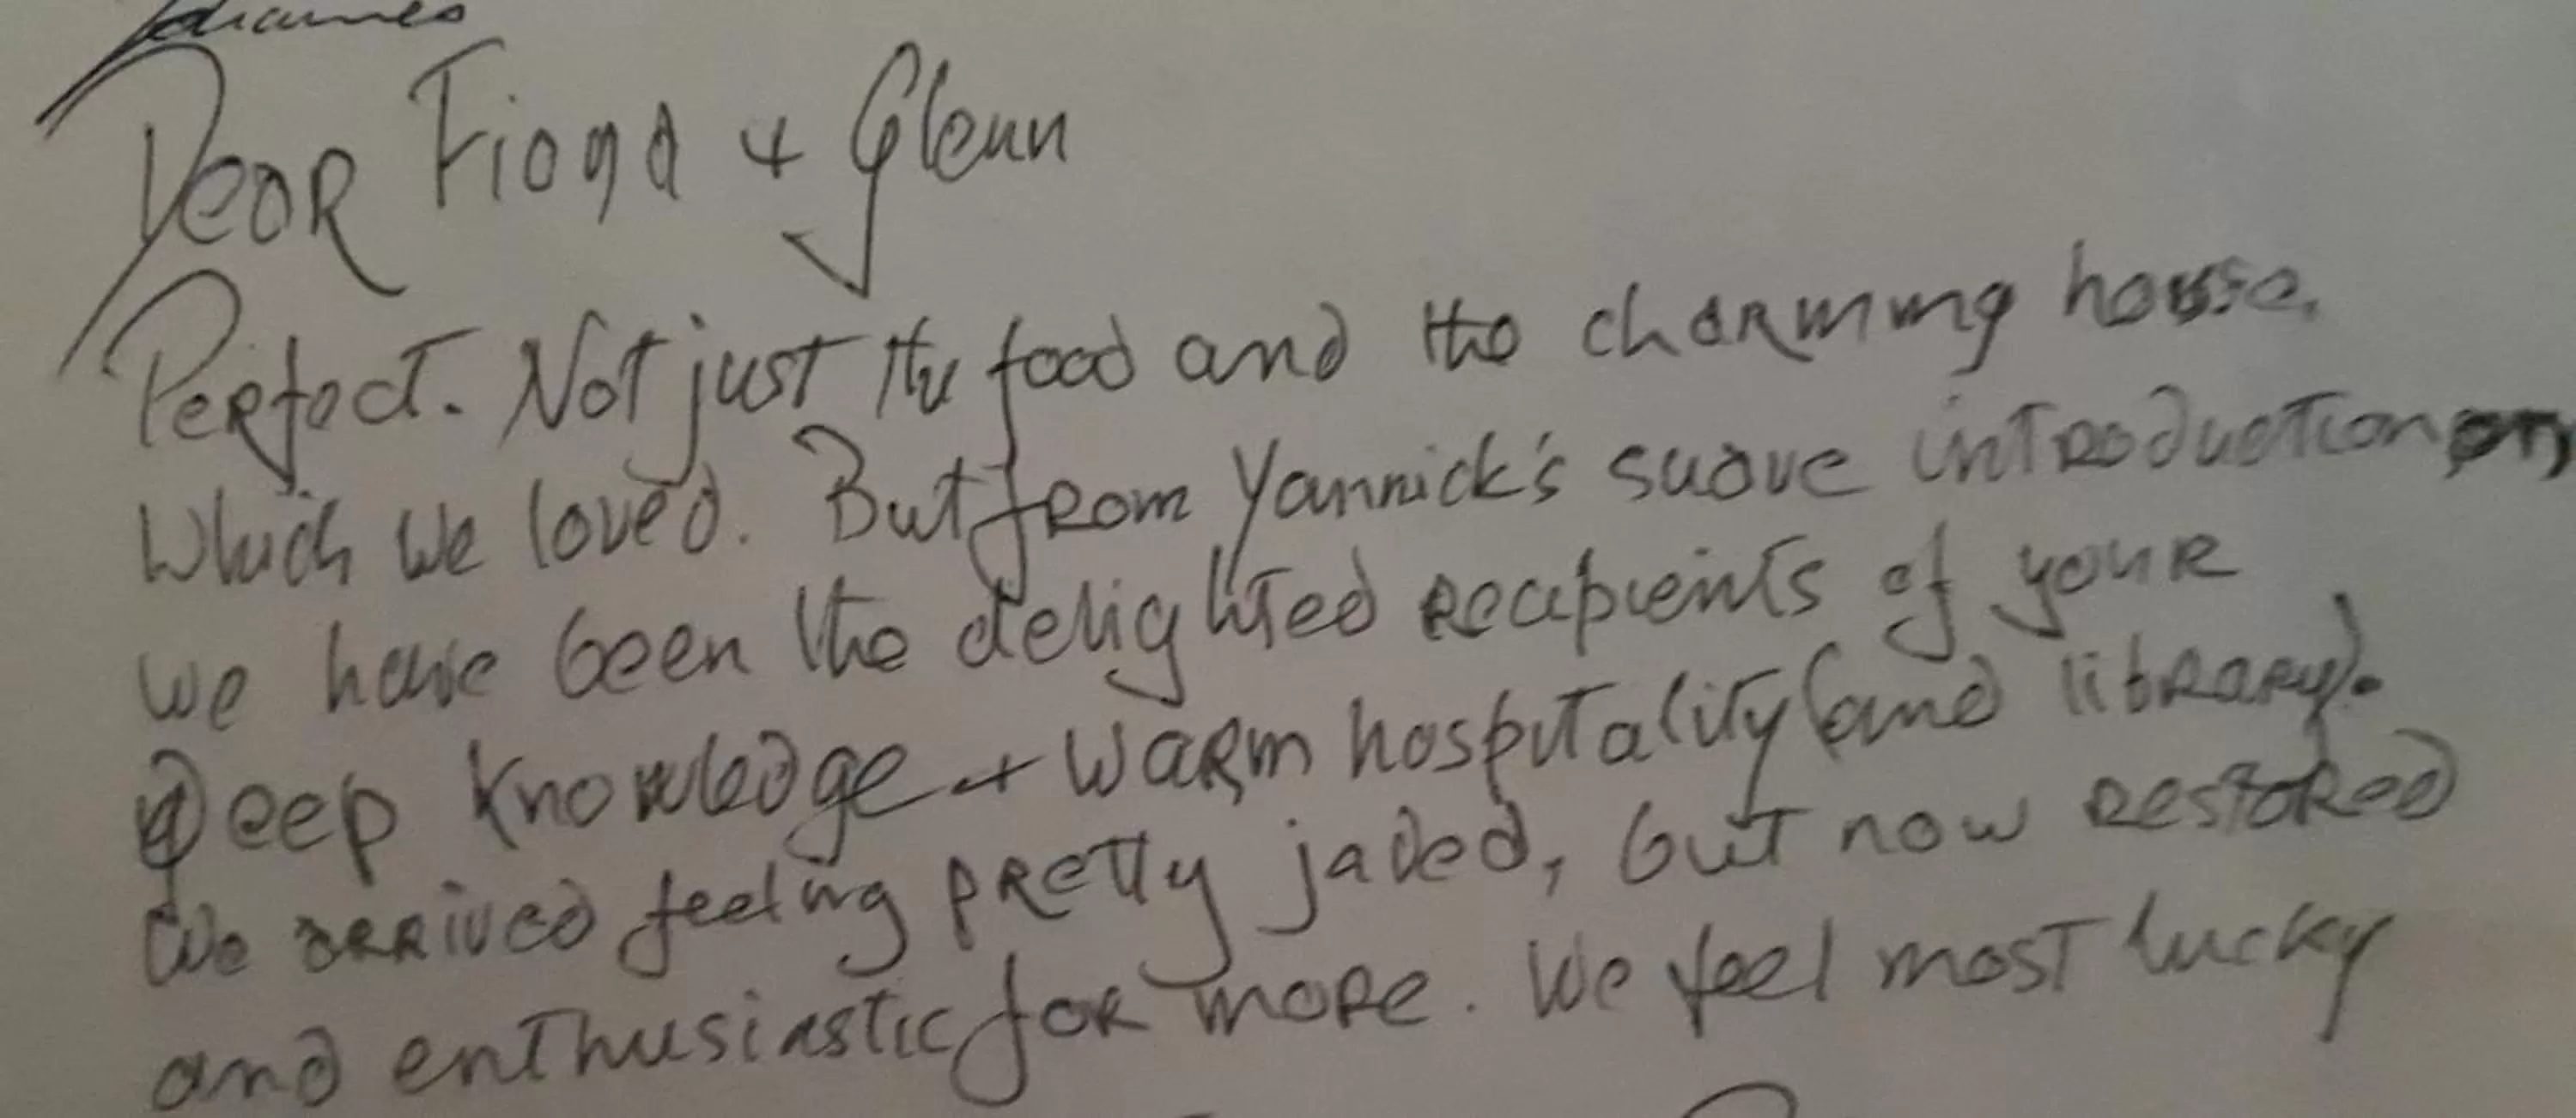 Johannes
Dear Fiona + Glenn
Perfect. Not just the food and the charming house,
which we loved. But from Yannick's suave introduction on,
we have been the delighted recipients of your
deep knowledge + warm hospitality (and library).
We arrived feeling pretty jaded, but now restored
and enthusiastic for more. We feel most lucky